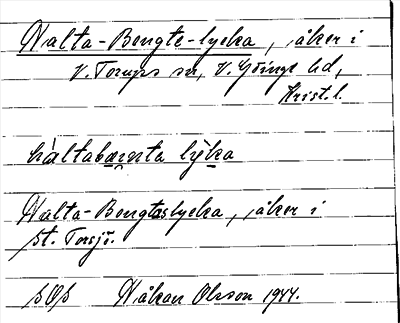 Halta-Bengte-lycka, åker i
V. Torups sn, V. Göinge hd,
Krist. l.
hàltabæṇta lýka
Halta-Bengtaslycka, åker i
St. Torsjö.
SOS Håkan Olsson 1944.